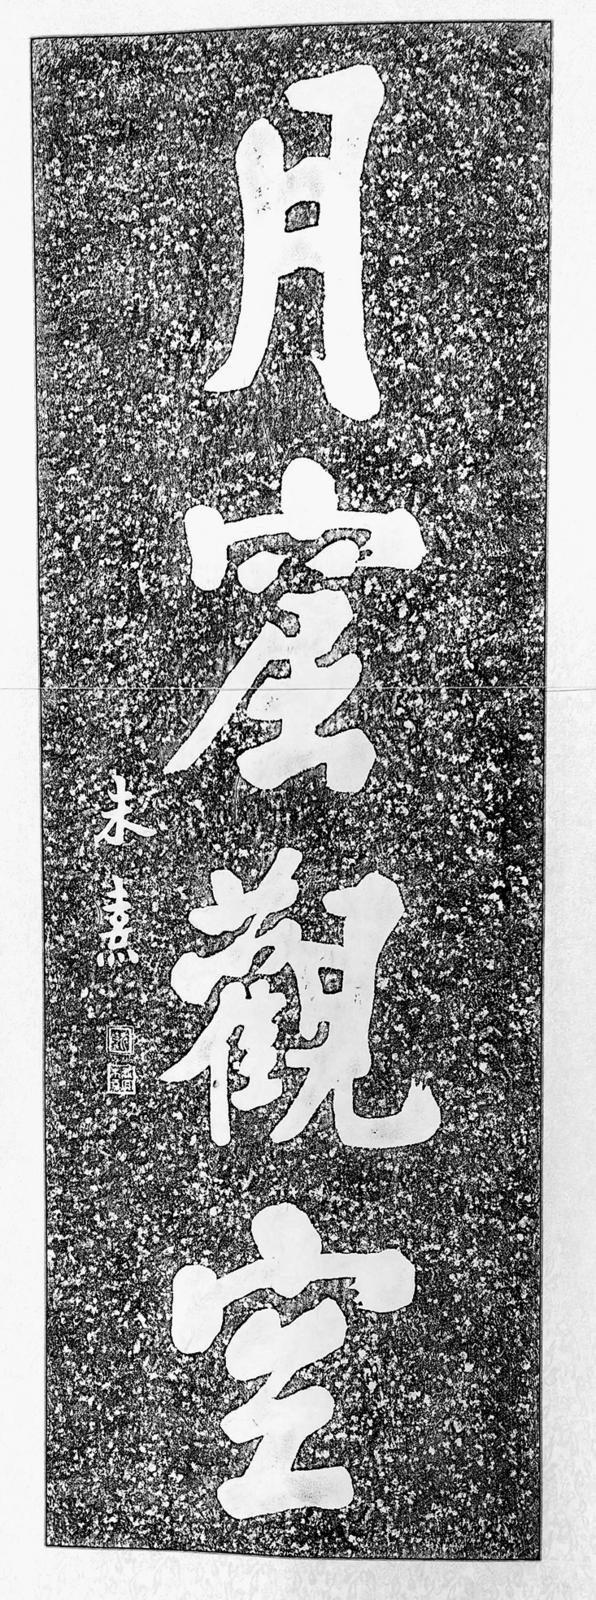 月窟觀室
朱熹